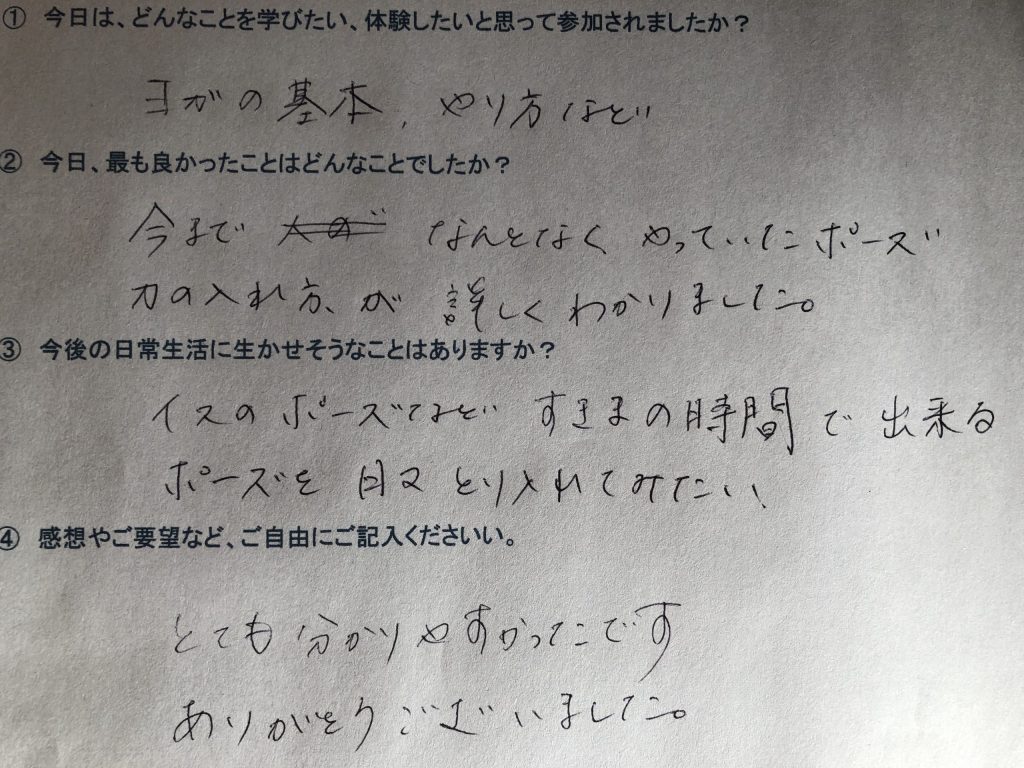 ① 今日は、どんなことを学びたい、体験したいと思って参加されましたか？
ヨガの基本、やり方など
② 今日、最も良かったことはどんなことでしたか？
今まで なんとなく やっていたポーズ
力の入れ方、が 詳しくわかりました。
③ 今後の日常生活に生かせそうなことはありますか？
イスのポーズなど すきまの時間で出来る
ポーズを 日々 とり入れてみたい、
④ 感想やご要望など、ご自由にご記入くださいい。
とても分かりやすかったです
ありがとうございました。